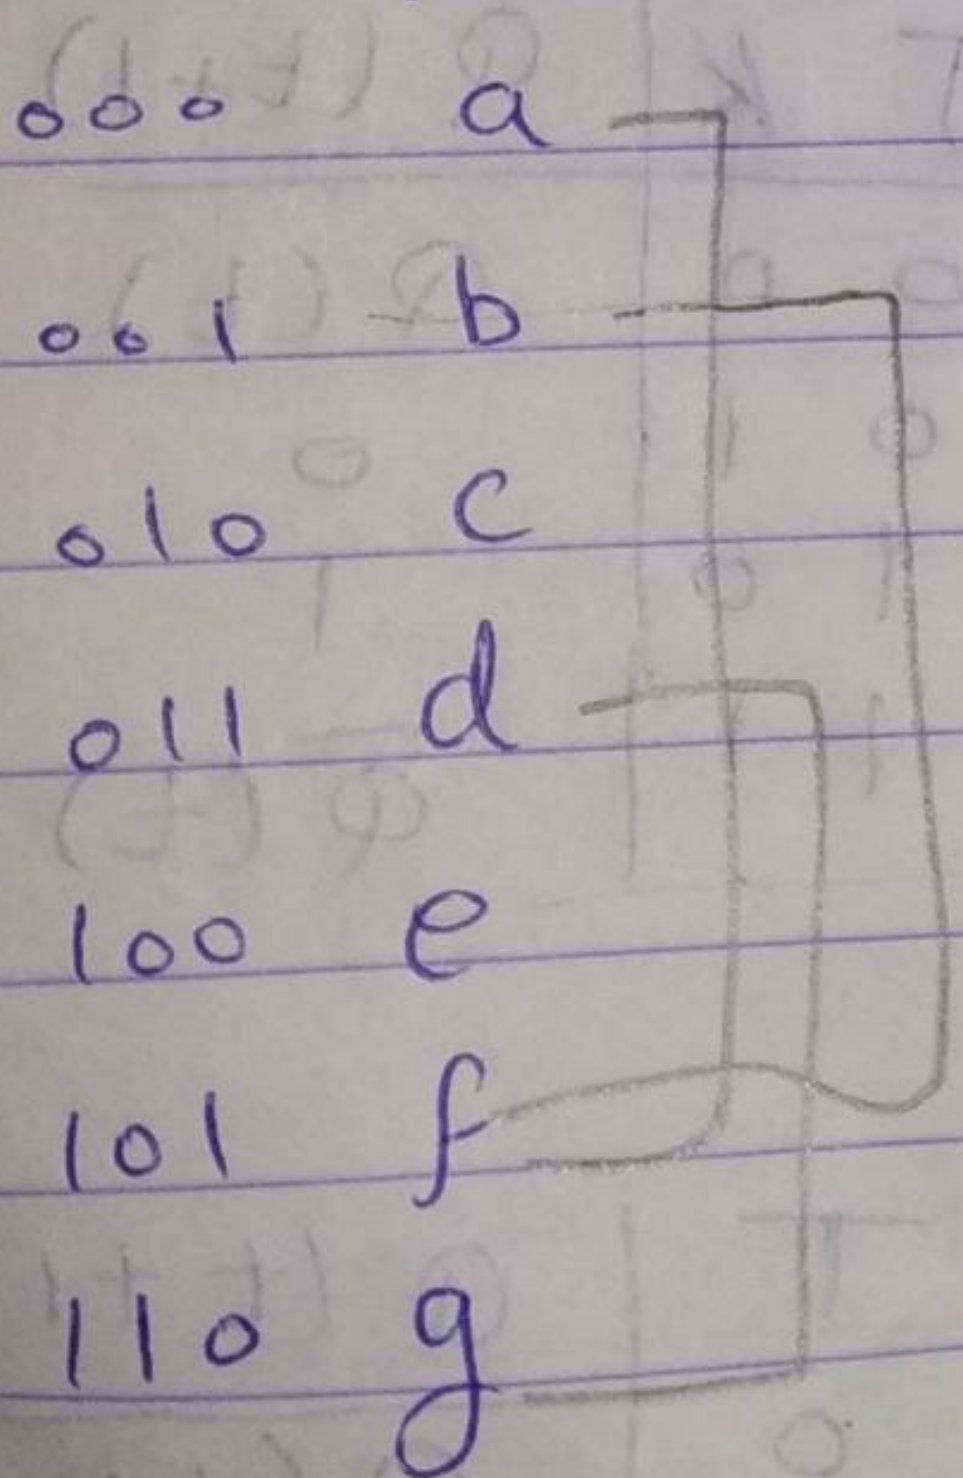 000 a
001 b
010 c
011 d
100 e
101 f
110 g